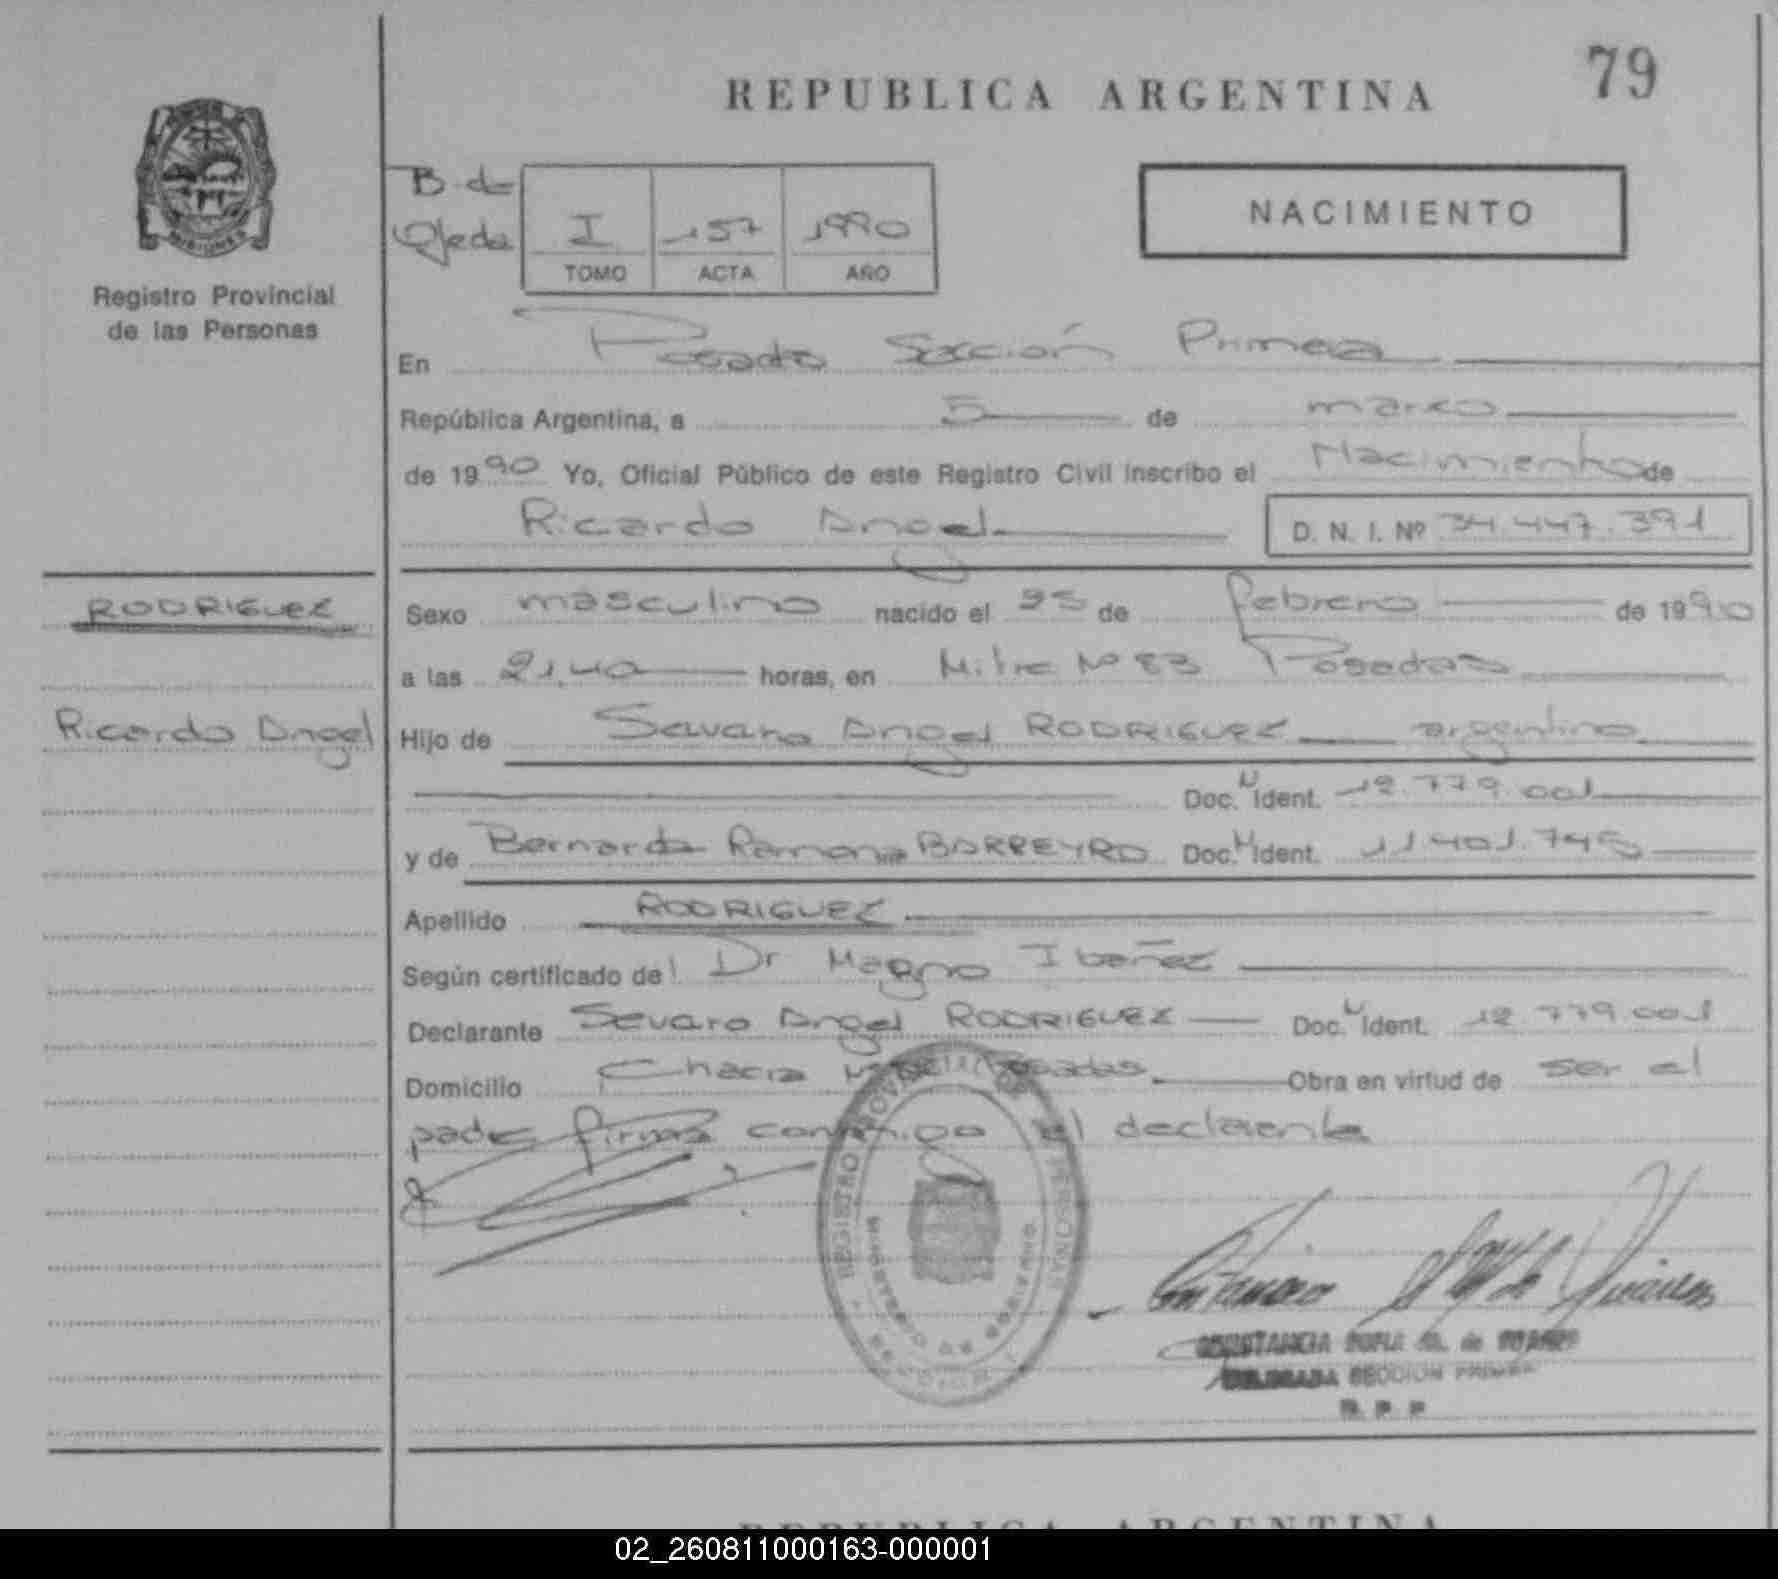 REPUBLICA ARGENTINA
79
MISIONES
Registro Provincial
de las Personas
B. de
Ojeda
I
157
1990
TOMO
ACTA
AÑO
NACIMIENTO
En Posadas Sección Primera
República Argentina, a 5 de marzo
de 1990 Yo, Oficial Público de este Registro Civil inscribo el Nacimiento de
Ricardo Angel
D. N. I. Nº 34.447.391
RODRIGUEZ
Ricardo Angel
Sexo masculino nacido el 25 de febrero de 1990
a las 21,40 horas, en Mitre Nº 83 Posadas
Hijo de Angel RODRIGUEZ argentino
Doc. Ident. 12.779.001
y de Bernarda Ramona BARREYRO Doc. Ident. 11.401.745
Apellido RODRIGUEZ
Según certificado del Dr Magno Ibañez
Declarante Angel RODRIGUEZ Doc. Ident. 12.779.001
Domicilio Chacra Posadas. Obra en virtud de ser el
padre firma conmigo el declarante
REGISTRO PROVINCIAL DE LAS PERSONAS
MINISTERIO DE GOBIERNO
CONSTANCIA SOFIA de
DELEGADA SECCION PRIMERA
R. P. P.
REPUBLICA ARGENTINA
02_260811000163-000001